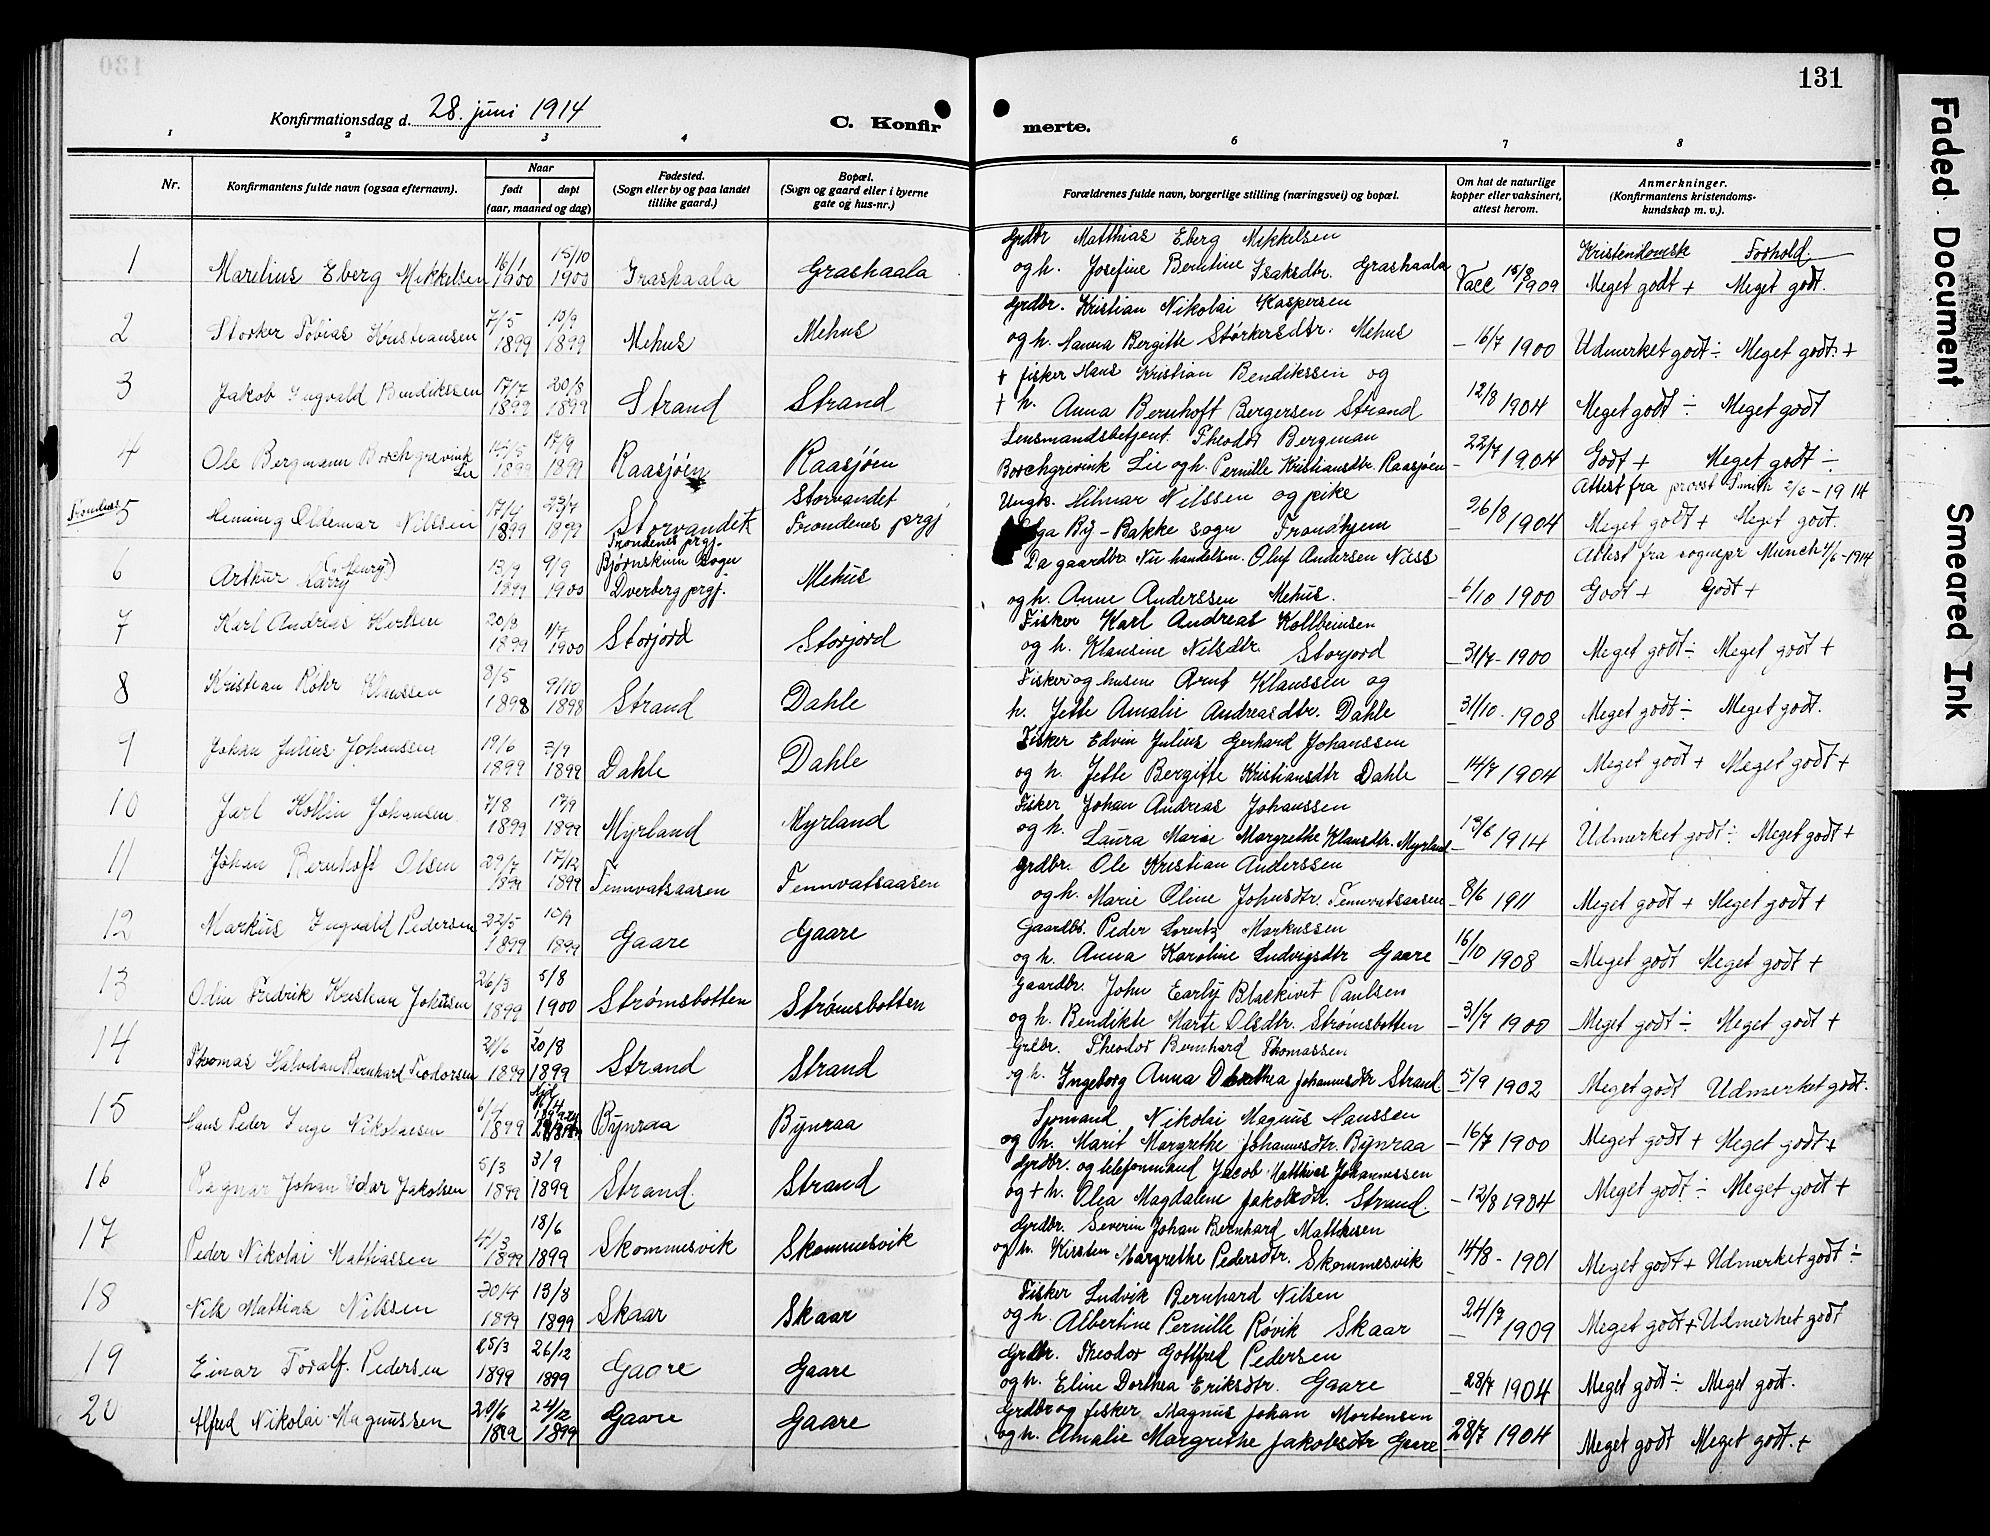 131
Konfirmationsdag d. 28. juni 1914
C. Konfir merte.
1 2 3 4 6 7 8
Nr. Konfirmantens fulde navn (ogsaa efternavn). Naar født døpt (aar, maaned og dag) Fødested. (Sogn eller by og paa landet tillike gaard.) Bopæl. (Sogn og gaard eller i byerne gate og hus-nr.) Forældrenes fulde navn, borgerlige stilling (næringsvei) og bopæl. Om hat de naturlige kopper eller vaksinert, attest herom. Anmerkninger. (Konfirmantens kristendomskundskap m. v.).
Kristendomsk Forhold.
1 Marelius Eberg Mikkelsen 16/1 1900 15/10 1900 Grashaala Grashaala
Grdbr Matthias Eberg Mikkelsen
og h. Josefine Berntine Isaksdtr. Grashaala Vacc 15/8 1909 Meget godt + Meget godt.
2 Storker Tobias Kristiansen 7/5 1899 10/9 1899 Mehus Mehus
Grdbr. Kristian Nikolai Kaspersen
og h. Hanna Bergitte Størkersdtr. Mehus – 16/7 1900 Udmerket godt ÷ Meget godt. +
3 Jakob Ingvald Bendikssen 17/7 1899 20/8 1899 Strand Strand
+ fisker Hans Kristian Bendikssen og
+ h. Anna Bernhoft Bergersen Strand 12/8 1904 Meget godt ÷ Meget godt
4 Ole Bergmann Borchgrevink Lie 1899 17/9 1899 Raasjøen Raasjøen
Lensmandsbetjent Theodor Bergman
Borchgrevink Lie og h. Pernille Kristiansdtr. Raasjøen – 22/7 1904 Godt + Meget godt ÷
5 Henning Oldemar Nilssen 17/4 1899 23/7 1899 Storvandet Trondenes prgj. Storvandet Trondenes prgj
Ungk. Hilmar Nilssen og pike
By – Bakke sogn Trondhjem – 26/8 1904 Attest fra provst Smith 2/6 – 1914
Meget godt + Meget godt.
6 Arthur Harry (Henry) 13/9 1899 9/9 1900 Bjørnskinn Sogn Dverberg prgj. Mehus
Da gaardbr. Nu handelsm. Oluf Andersen Næss
og h. Anne Anderssen Mehus. – 6/10 1900 Attest fra sognepr Munch 4/6 – 1914
Godt + Godt +
7 Karl Andreas Karlsen 20/8 1899 1/7 1900 Storjord Storjord
Fisker Karl Andreas Kolbeinsen
og h. Klausine Nilsdtr. Storjord – 31/7 – 1900 Meget godt ÷ Meget godt +
8 Kristian Røhr Klaussen 8/5 1898 9/10 1898 Strand Dahle
Fisker og husm. Arnt Klaussen og
h. Jette Amalie Andreasdtr. Dahle – 31/10 – 1908 Meget godt ÷ Meget godt.
9 Johan Julius Johanssen 19/6 1899 3/9 1899 Dahle Dahle
Fisker Edvin Julius Gerhard Johanssen
og h. Jette Bergitte Kristiansdtr Dahle – 14/7 1904 Meget godt + Meget godt +
10 Jarl Kolbin Johansen 7/8 1899 17/9 1899 Myrland Myrland
Fisker Johan Andreas Johanssen
og h. Laura Marie Margrethe Klausdtr. Myrland – 13/6 1914 Udmerket godt ÷ Meget godt +
11 Johan Bernhoft Olsen 29/7 1899 17/12 1899 Tennvatsaasen Tennvatsaasen
Grdbr. Ole Kristian Anderssen
og h. Marie Oline Johnsdtr. Tennvatsaasen 8/6 1911 Meget godt + Meget godt +
12 Markus Ingvald Pedersen 22/5 1899 10/9 1899 Gaare Gaare
Gaardbr. Peder Lorentz Markussen
og h. Anna Karoline Ludvigsdtr Gaare 16/10 1908 Meget godt Meget godt +
13 Odin Fredrik Kristian Johnsen 26/3 1899 5/8 1900 Strømsbotten Strømsbotten
Gaardbr. John Early Blackivet Paulsen
og h. Bendikte Marte Olsdtr. Strømsbotten – 31/7 1900 Meget godt ÷ Meget godt +
14 Thomas Halvdan Bernhard Teodorsen 21/6 1899 20/8 1899 Strand Strand
Grdbr. Theodor Bernhard Thomassen
og h. Ingeborg Anna Dorthea Johannesdtr Strand – 5/9 1902 Meget godt Udmerket godt.
15 Hans Peder Inge Nikolaisen 6/4 1899 Bynraa Bynraa
Sjømand Nikolai Magnus Hanssen
og h. Marit Margrethe Johannesdtr. Bynraa – 16/7 1900 Meget godt + Meget godt +
16 Ragnar Johan Edor Jakobsen 5/3 1899 3/9 1899 Strand. Strand
Grdbr. og telefonmand Jacob Matthias Johannessen
og + h. Olea Magdalene Jakobsdtr. Strand. – 12/8 1904 Meget godt ÷ Meget godt +
17 Peder Nikolai Mathiassen 17/3 1899 18/6 1899 Skommesvik Skommesvik
Grdbr. Severin Johan Bernhard Mathisen
og h. Kirsten Margrethe Pedersdtr. Skommesvik 14/8 – 1901 Meget godt + Udmerket godt ÷
18 Nils Mathias Nilssen 30/4 1899 13/8 1899 Skaar Skaar
Fisker Ludvik Bernhard Nilsen
og h Albertine Pernille Røvik Skaar – 24/9 1909 Meget godt + Udmerket godt
19 Einar Toralf. Pedersen 25/3 1899 26/12 1899 Gaare Gaare
Grdbr. Theodor Gottfred Pedersen
og h. Eline Dorthea Eriksdtr. Gaare – 28/7 1904 Meget godt ÷ Meget godt.
20 Alfred Nikolai Magnussen 20/6 1899 24/12 1899 Gaare Gaare
Grdbr og fisker Magnus Johan Mortensen
og h. Amalie Margrethe Jakobsdtr Gaare 28/7 1904 Meget godt Meget godt. +
Faded Document
Smeared Ink